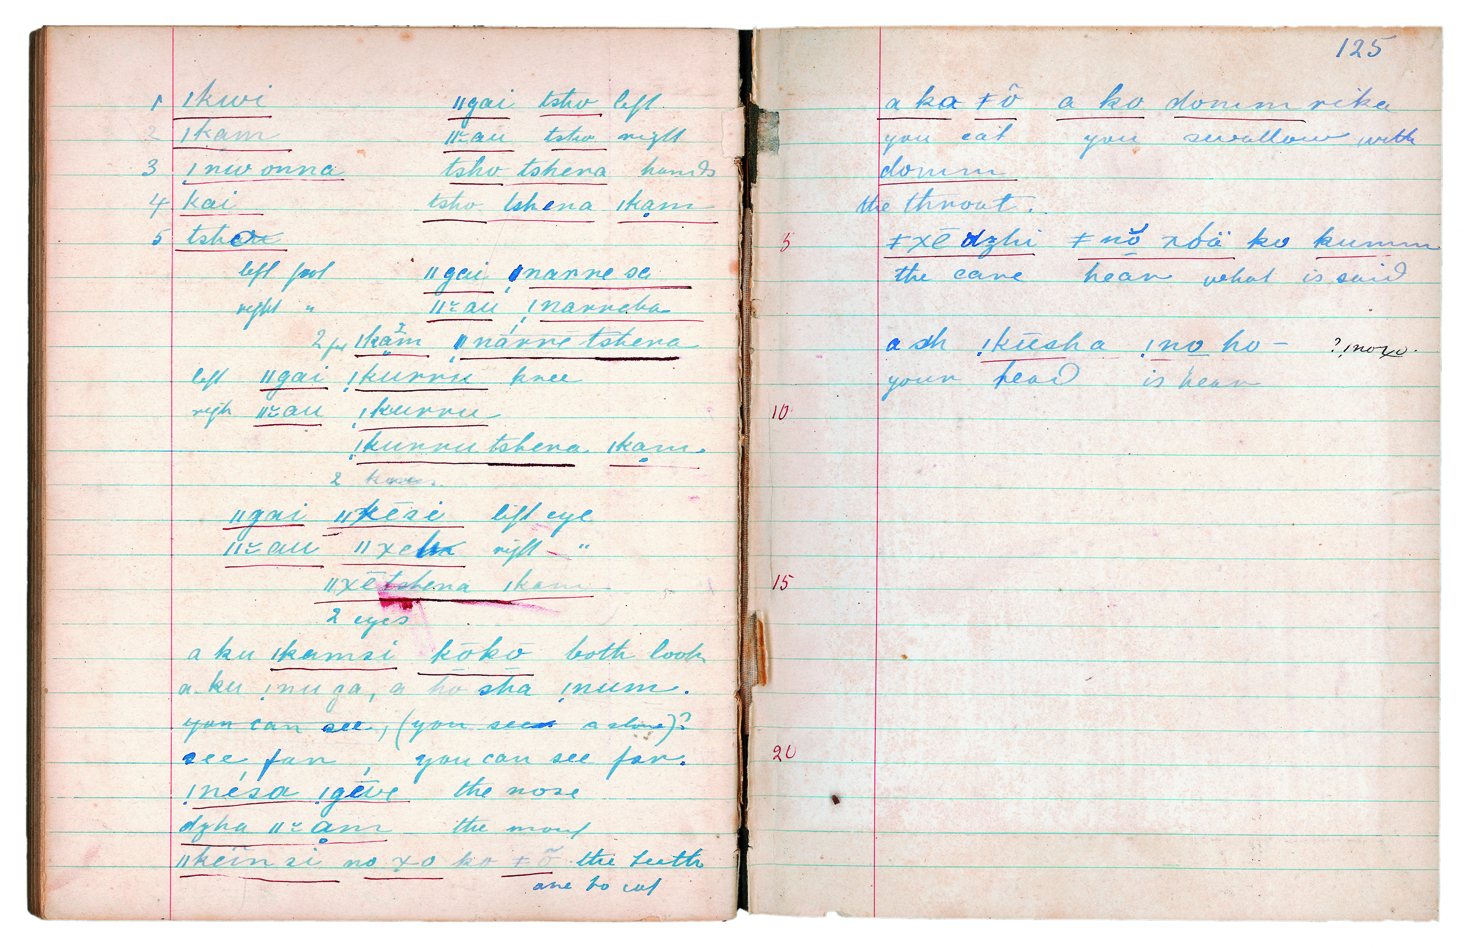 1 ǀkwi ǁgai tsho left
2 ǀkam ǁ≃au tsho right
3 ǃnwonna tsho tshena hands
4 kai tsho tshena ǀkạm
5
left foot ǁgai ǃnarre sa
right " ǁ≃au ǃnarreba
2 ǀkạm ǃnárrētshena
left ǁgai ǃkurru knee
righ ǁ≃au ǃkurru
ǃkurru tshena ǀkạm
2
ǁgai left eye
ǁ≃au right "
ǁxētshena ǀkam
2 eyes
a ku ǀkamsi kōkō both look
a ku ǃnu za, a hō sha ǃnum.
you can see, (you see a stone)?
see far, you can see far.
ǃnésa ǃgēve the nose
dzha ǁ≃ạm the mouf
ǁkēin si no xo ko ǂõ the teeth
are to eat
125
a ka ǂõ a ko domm rika
you eat you swallow with
domm
the throat.
5 ǂxē dzhi ǂnŏ ko kumm
the eare hear what is said
ǃkūsha ǃno ho – ? ǃnoxo.
your head is hear
10
15
20